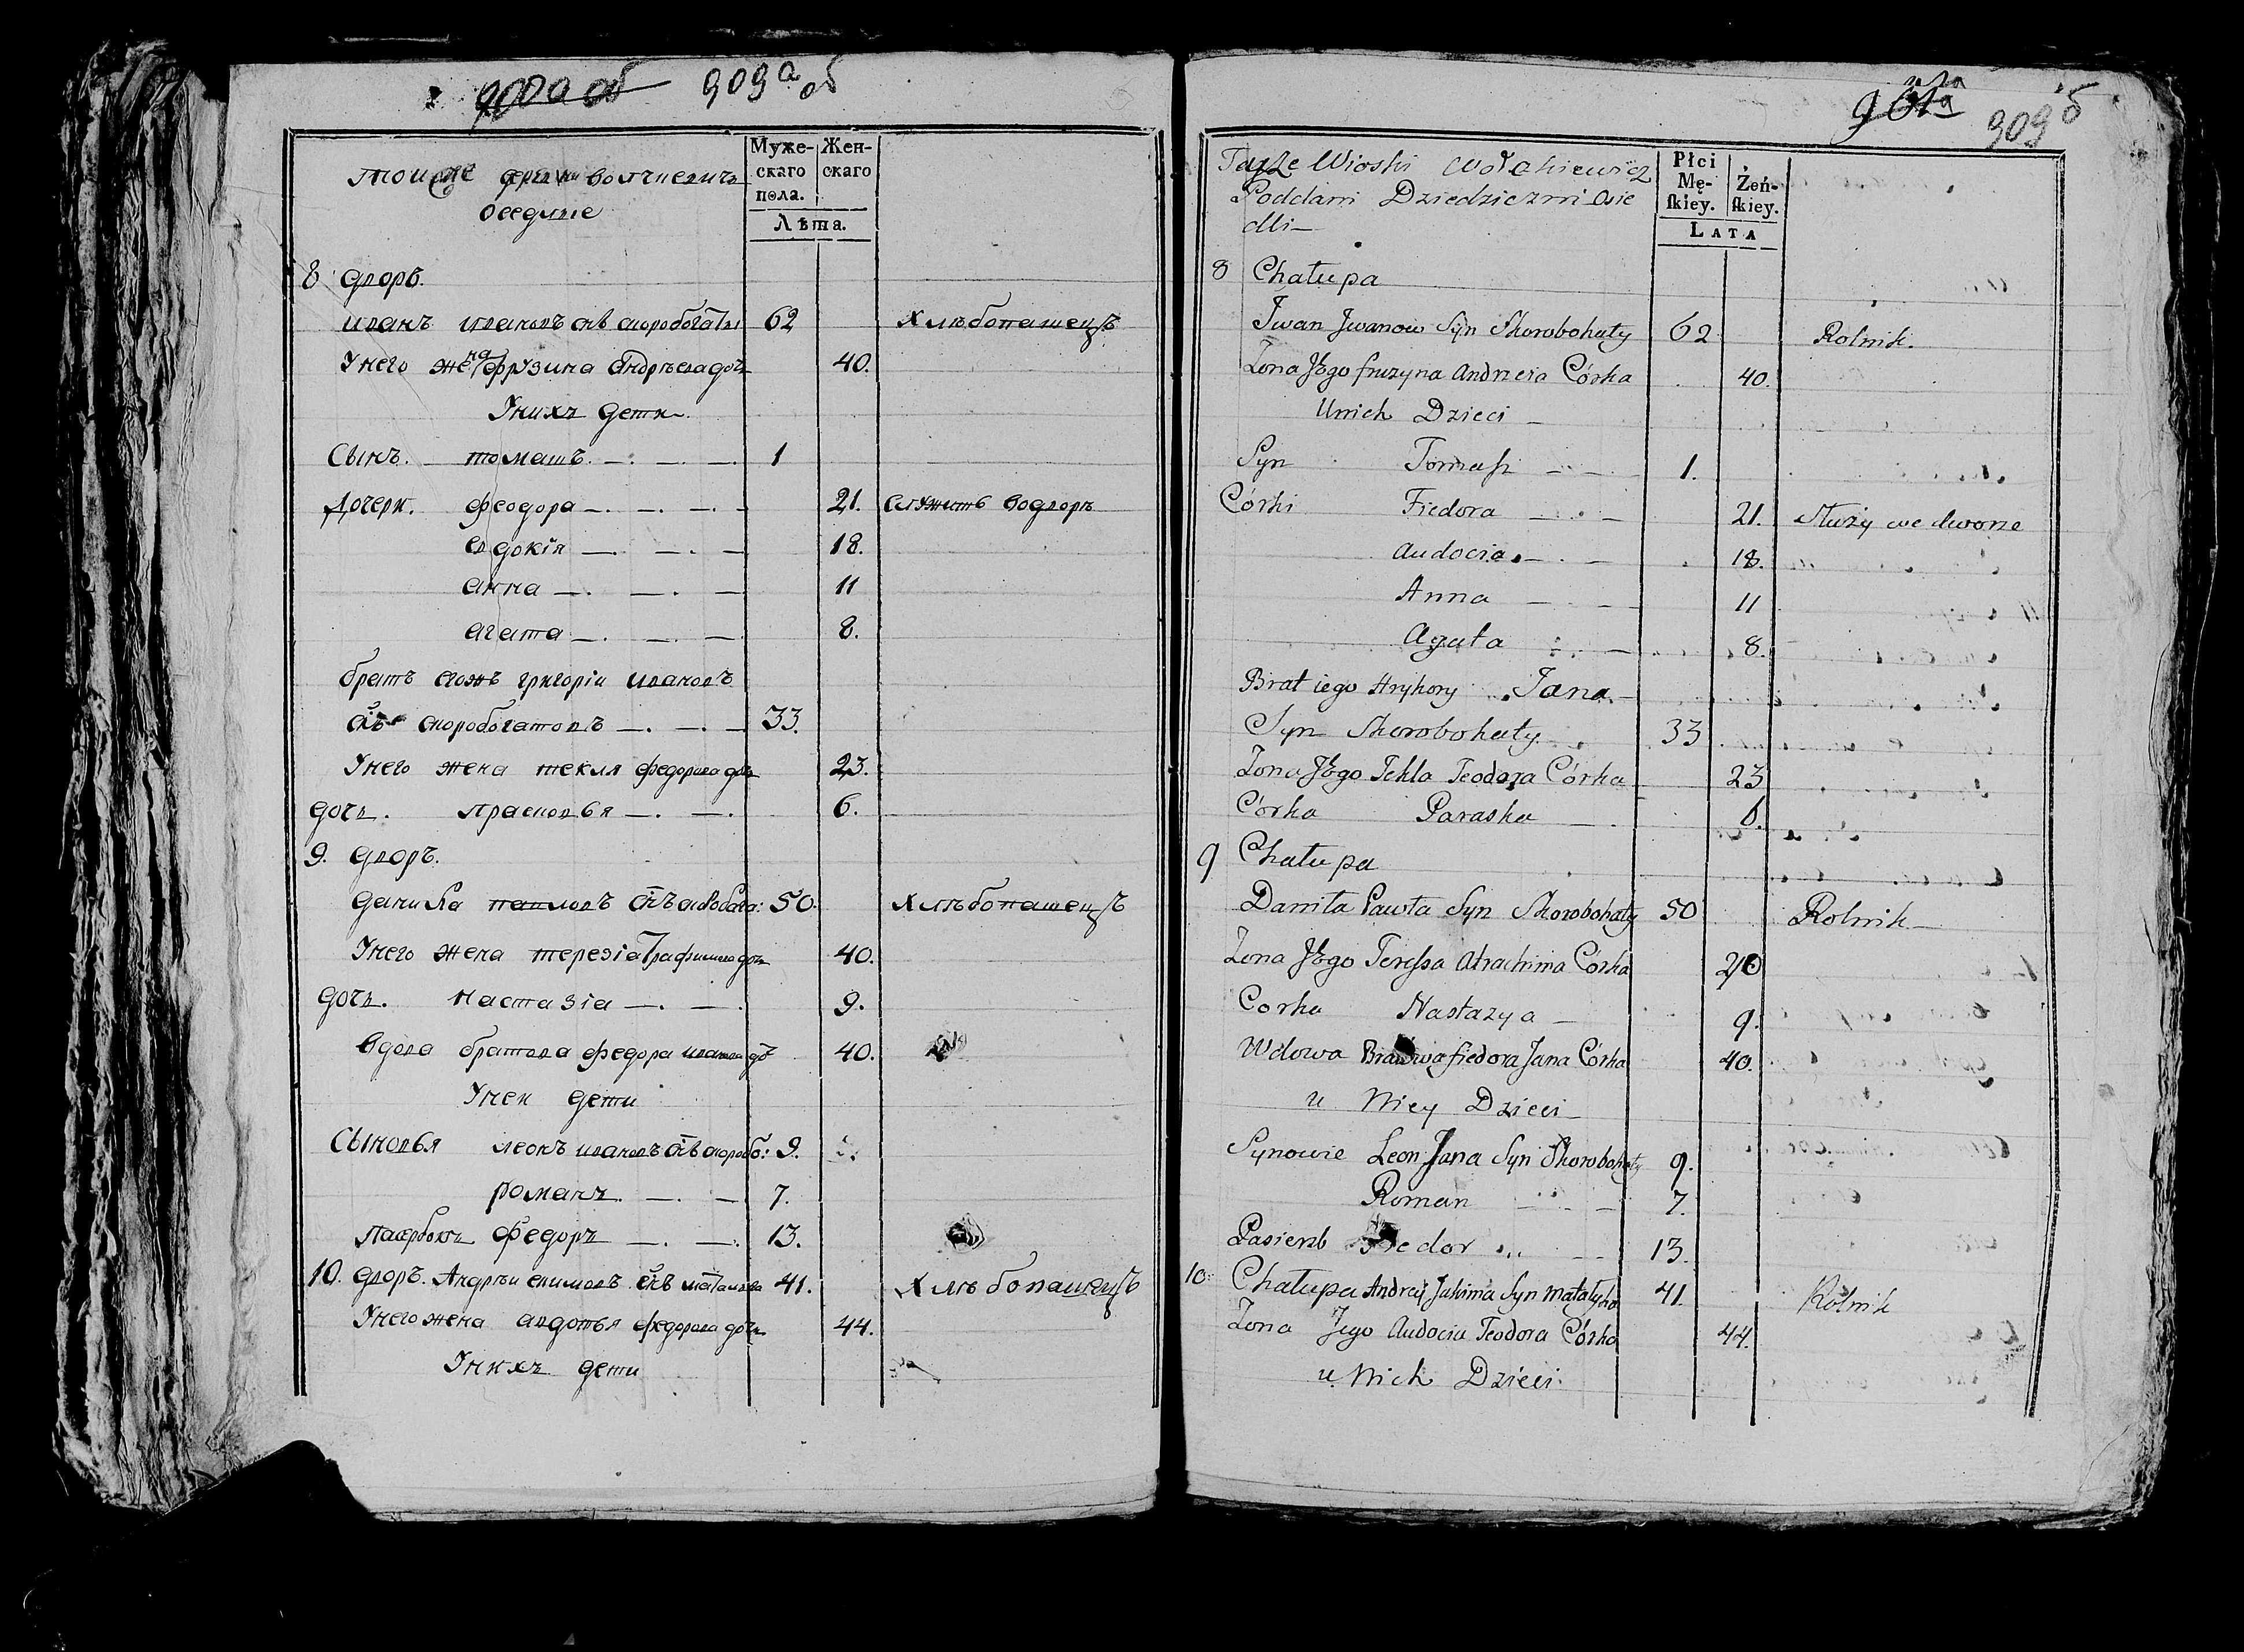 900а об 909а об
Муже-
скаго
пола.
Жен-
скаго
Лѣта.
тоиже дрвни волчкевичъ
оседлые
8 дворъ.
иванъ ивановъ снъ скоробогаты 62 хлѣбопашецъ
Унего жена фрузина андрѣева дочь 40.
Унихъ дети
Сынъ. томашъ. 1
Дочери. феодора 21. служитъ водворѣ
евдокія 18.
анна 11
агата 8.
братъ егожъ григоріи ивановъ
снъ скоробогатовъ 33.
Унего жена текля федорова дочь 23.
дочь. прасковья 6.
9. дворъ.
данила павловъ снъ скробога: 50. хлѣбопашецъ
Унего жена терезіа трафимова дочь 40.
дочь. настазіа 9.
вдова братова федора иванова дочь 40.
Унеи дети
Сыновья леонъ ивановъ снъ скоробо: 9.
романъ. 7.
пасербокъ федоръ 13.
10. дворъ. Андрѣи екимовъ снъ 41. хлѣбопашецъ
Унего жена авдотья федорова дочь 44.
Унихъ дети
909б
Płci
Mę-
skiey.
Żeń-
skiey.
LATA
Tayże Wioski Wołakiewicz
Poddani Dziedziczni Osie
dli
8 Chałupa
Jwan Jwanow Syn Skorobohaty 62 Rolnik.
Zona Jego fruzyna Andrieia Córka 40.
Unich Dzieci
Syn Tomasz 1.
Córki Fiedora 21. Służy we dworze
Audocia 18.
Anna 11
Agata 8.
Brat iego Hryhory Jana
Syn Skorobohaty 33
Zona Jego Tekla Teodora Córka 23
Córka Paraska 6.
9 Chałupa
Daniła Pawła Syn Skorobohaty 50 Rolnik
Zona Jego Teressa Atrachima Corka
Corka Nastazya 9.
Wdowa Bratowa fiedora Jana Córka 40.
u Niey Dzieci
Synowie Leon Jana Syn Skorobohaty 9.
Roman 7.
Pasierzb Fiedor 13.
10 Chałupa Andrej Jakima Syn Matałyha 41. Rolnik
Zona Jego Audocia Teodora Córka 44.
u Nich Dzieci